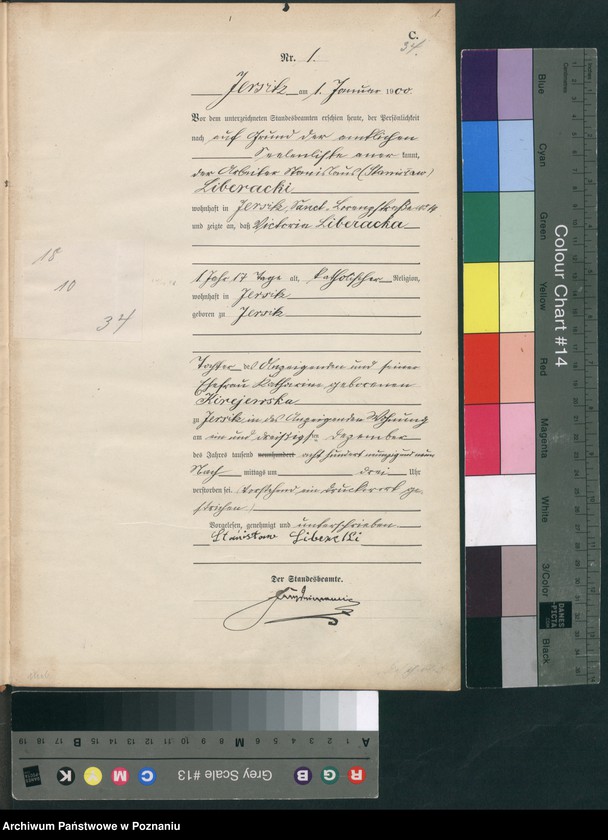 C.
34.
Nr. 1.
Jersitz am 1. Januar 1900.
Vor dem unterzeichneten Standesbeamten erschien heute, der Persönlichkeit
nach auf Grund der amtlichen
Seelenliste aner kannt,
der Arbeiter Stanislaus (Stanislaw)
Liberacki
wohnhaft in Jersitz, Sanct-Lorenzstraße
und zeigte an, daß Victoria Liberacka
1 Jahr 17 Tage alt, katholischer Religion,
wohnhaft in Jersitz
geboren zu Jersitz
Tochter des Anzeigenden und seiner
Ehefrau Katharina geborenen
Kirejewska
zu Jersitz in des Anzeigenden Wohnung
am ein und dreißigsten Dezember
des Jahres tausend neunhundert acht hundert neunzig und neun
Nach mittags um drei Uhr
verstorben sei. (Vorstehend ein Druckwort ge-
strichen.)
Vorgelesen, genehmigt und unterschrieben
Stanisław Liberacki
Der Standesbeamte.
18
10
34
Colour Chart #14
Blue
Cyan
Green
Yellow
Red
Magenta
White
3/Color
Black
Centimetres
Inches
DANES
PICTA
Grey Scale #13
R G B C M Y K
A 1 2 3 4 5 6 M 8 9 10 11 12 13 14 15 B 17 18 19
Archiwum Państwowe w Poznaniu